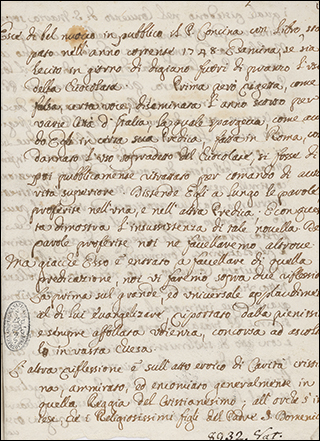 Esce di bel nuovo in pubblico il P. Concina con Libro, stam
pato nell'anno corrente 1748. Esamina se sia
lecito in giorno di digiuno fuori di pranzo l'uso
della Cioccolata. Prima però rigetta, come
falsa, certa voce, diseminata l'anno scorso per
varie Città d'Italia, la quale spargeva, come aven
do Egli in certa sua Predica, fatta in Roma, con
dannato l'uso sopradetto del Cioccolate, si fosse di
poi pubblicamente ritrattato per comando di autto
rità superiore. Distende Egli a lungo le parole
proferite nell'una, e nell'altra Predica. E con ques
ta dimostra l'insussistenza di tale novella. Del
parole proferite noi ne favellaremo altrove.
Ma giacche Esso è entrato a favellare di quella
predicazione, noi vi faremo sopra due riflessio
La prima sul grande, ed universale applaudimen
al di lui Evangelizare, riportato dalla pieniss
e sempre affollata Udienza, concorsa ad ascol
lo in varia Chiesa.
L'altra riflessione è sull'atto eroico di Carità cristi
na, ammirato, ed encomiato generalmente in
quella Reggia del Cristianesimo; all'ove s'in
tese, che i Religiosissimi figli del Padre S. Domenic
8932. Hat.